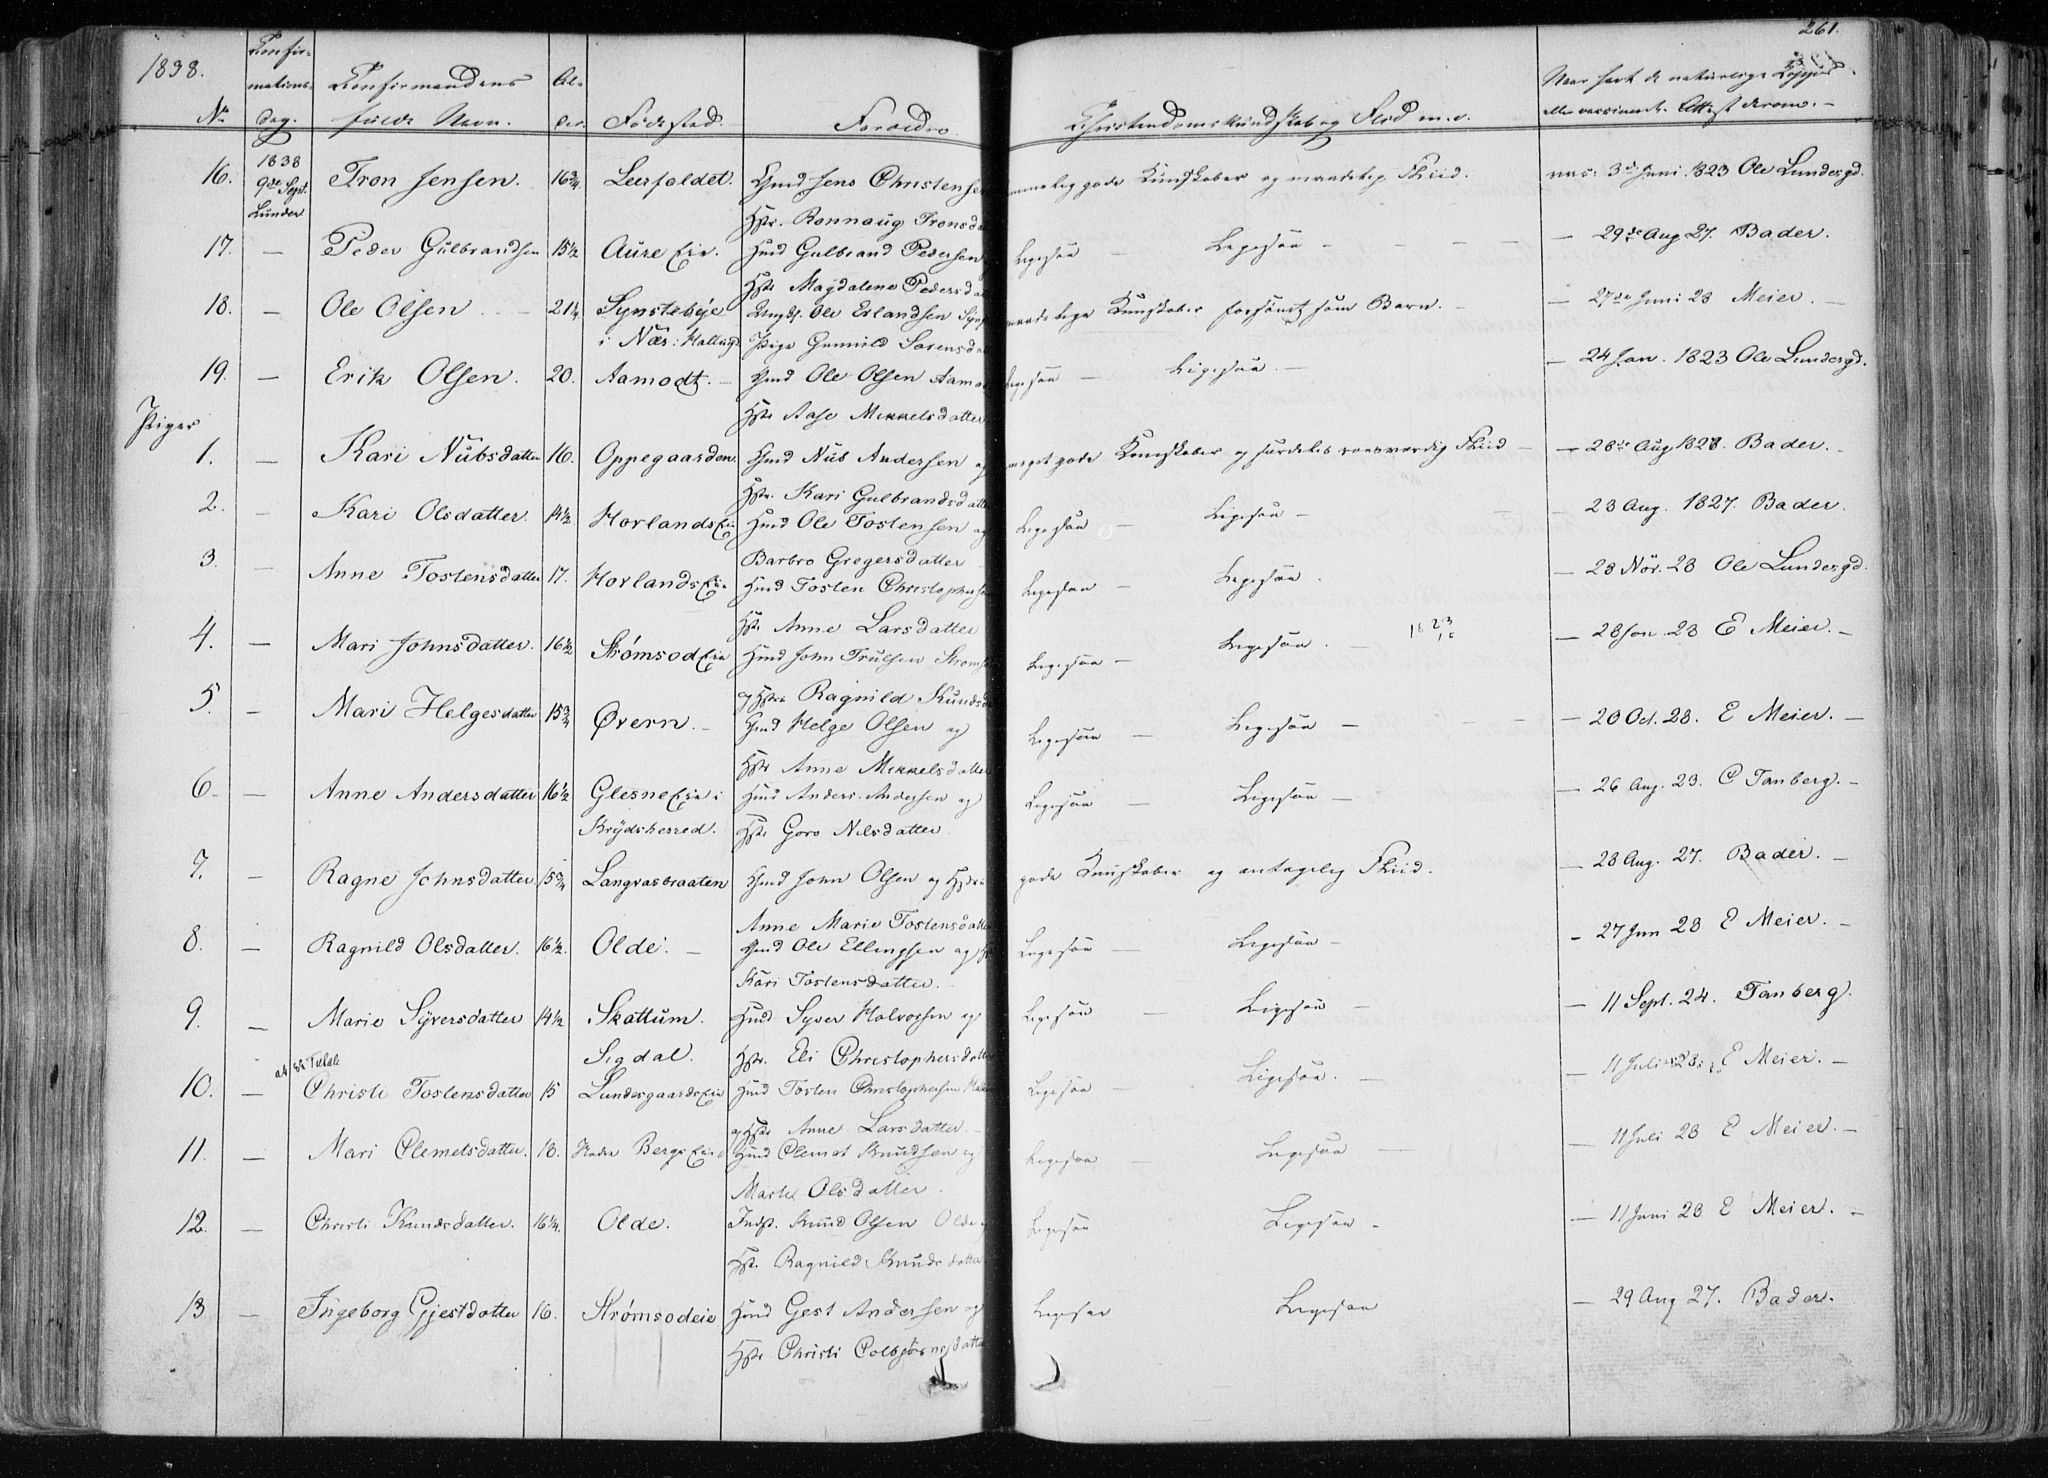 1838. 261.
Confir-
mations-
dag. Confirmandens
fulde Navn. Al-
der. Födested. Foreldre. Christendomskundskab og Flid m.v. Naar havt de naturlige Kopper
eller vaccineret. Attest derom.
No
16. 1838
9de Sept.
Lunder Tron Jensen. 16 3/4 Leerfaldet. Gmd Jens Christensen
Hstr. Ronnaug Tronsda gode Kundskaber og Fliid. vac: 3de Juni 1823 Ole Lundesgd.
17. — Peder Gulbrandsen 15 1/2 Aure Eie. Hmd Gulbrand Pedersen
Hstr Magdalene Pedersda Ligesaa — Ligesaa — — 29de Aug 27. Bader.
18. — Ole Olsen 21 1/4 Synstebye
i Næs: Halling. Ungk. Ole Erlandsen
Pige Gunnild Sorensda Kundskaber forsömt som Barn. — 27de Juni 23 Meier. —
19. — Erik Olsen. 20. Aamodt. — Gmd Ole Olsen Aamo
Hstr Aase Mikkelsdatter Ligesaa — Ligesaa. — — 24 Jan. 1823 Ole Lundesgd.
Piger
1. — Kari Nubsdatter 16. Oppegaarden. Gmd Nub Andersen og
Hstr. Kari Gulbrandsdatter meget gode Kundskaber og særdeles roesværdig Fliid — — 28de Aug 1828. Bader. —
2. — Kari Olsdatter. 14 1/2 Horlands Eie Hmd Ole Tostensen og
Barbro Gregersdatter Ligesaa — Ligesaa — — 23 Aug. 1827. Bader.
3. — Anne Tostensdatter 17. Horlands Eie Hmd Tosten Christophersen
Hstr Anne Larsdatter Ligesaa — Ligesaa. — 28 Nov. 23 Ole Lundesgd.
4. — Mari Johnsdatter. 16 1/2 Strømsod Eie Hmd John Trulsen Stroms
og Hstr Ragnild Knudsda Ligesaa — Ligesaa. — 1823 — 28 Jan 23 E Meier. —
5. — Mari Helgesdatter 15 3/4 Øvern. — Gmd Helge Olsen og
Hstr Anne Mikkelsdatter Ligesaa — Ligesaa — — 20 Oct. 23. E Meier. —
6. — Anne Andersdatter 16 1/2 Glesne Eie i
Krydsherred. Hmd Anders Andersen og
Hstr Goro Nilsdatter Ligesaa — Ligesaa — — 26 Aug. 23. C Tanberg. —
7. — Ragne Johnsdatter 15 3/4 Langvasbraaten Gmd John Olsen og Hstr
Anne Marie Tostensdatter gode Kundskaber og antagelig Fliid. — 28 Aug. 27. Bader. —
8. — Ragnild Olsdatter. 16 1/2. Olde. — Gmd Ole Ellingsen og
Kari Tostensdatter. — Ligesaa — Ligesaa — — 27 Jun 23 E Meier. —
9. — Marie Syversdatter 14 1/2 Skattum.
Sigdal. Hmd Syver Halvorsen og
Hstr. Eli Christophersdatter Ligesaa — Ligesaa — — 11 Sept. 24. Tanberg.
10. — Christi Tostensdatter 15 Lundesgaards Eie Hmd Tosten Christophersen
og Hstr Anne Larsdatter. — Ligesaa Ligesaa. — — 11 Juli 23. E Meier. —
11. — Mari Clemetsdatter. 18. Bergs Eie Hmd Clemet Knudsen og
Marte Olsdatter. Ligesaa — Ligesaa — — 11 Juli 23 E Meier. —
12. — Christi Knudsdatter. 16 1/4. Olde. Indst. Knud Olsen Olde
Hst. Ragnild Knudsdatter Ligesaa Ligesaa — — 11 Juni 23 E Meier. —
13 — Ingeborg Gjestdatter 16. Strømsodeie Hmd Gest Andersen og
Hstr Christi Colbjörnsdatter Ligesaa Ligesaa — 29 Aug 27. Bader.